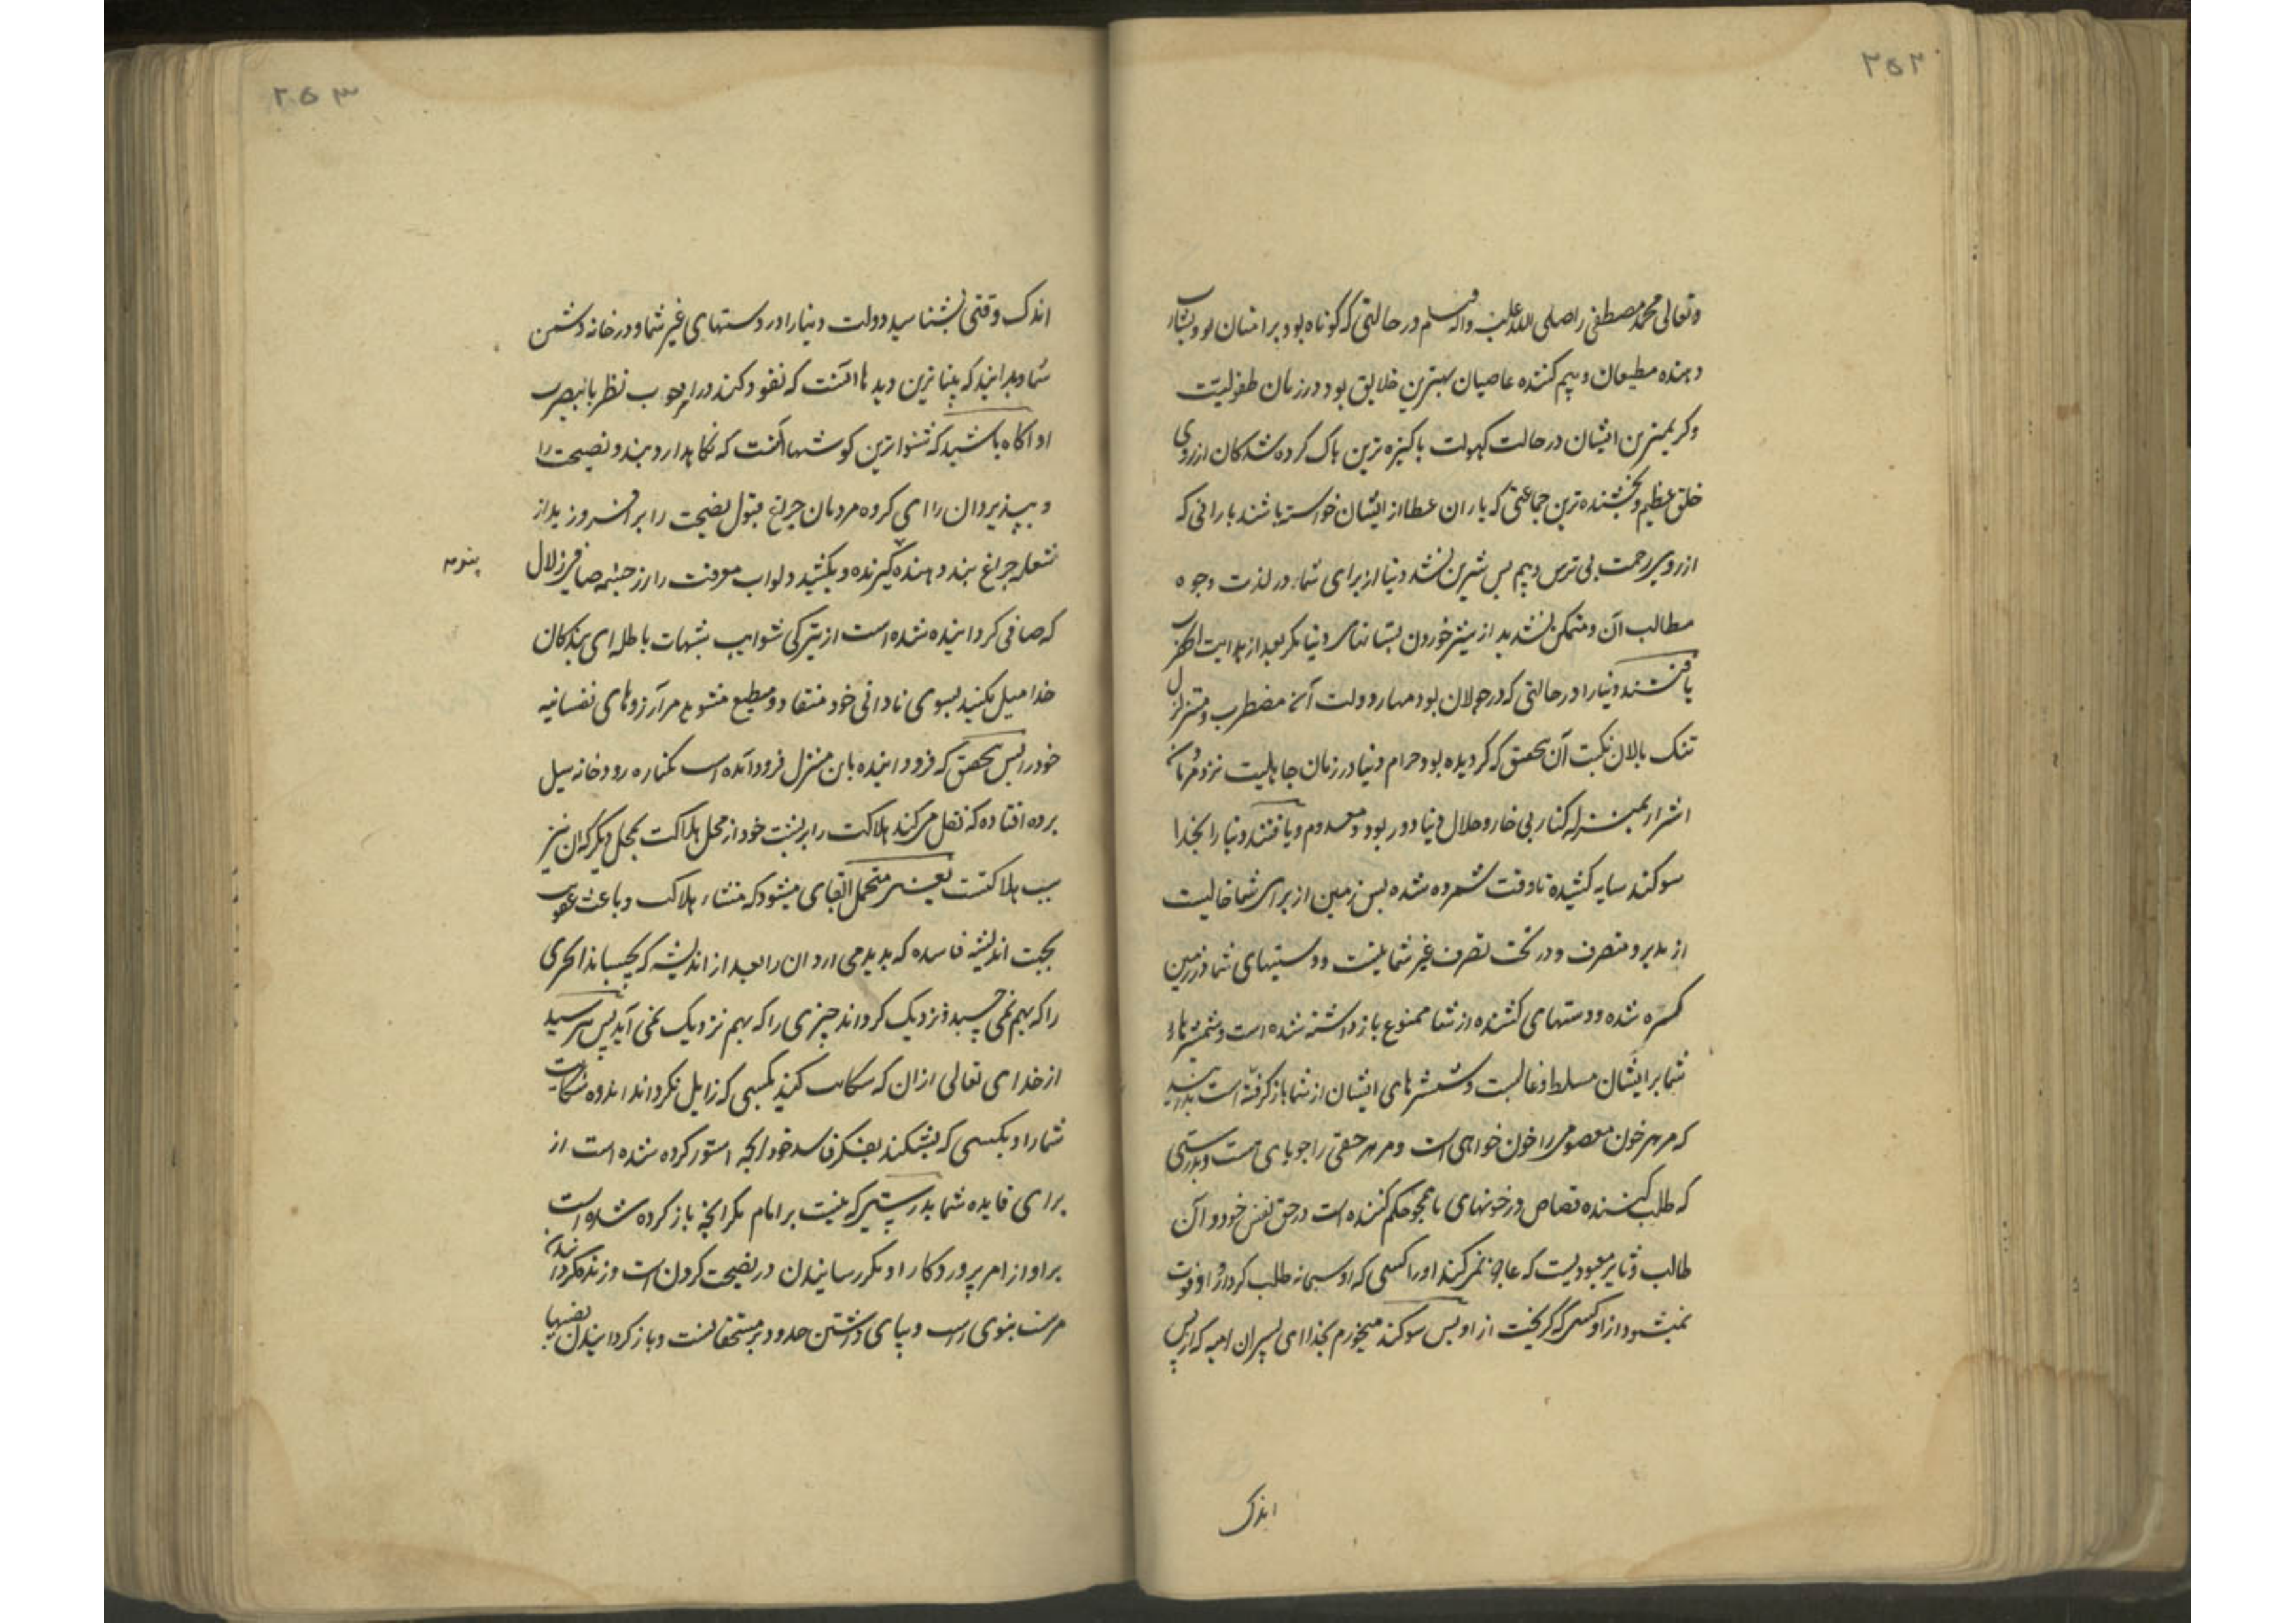 ۲۵۲
وتعالی محمد مصطفی را صلی الله علیه واله وسلم در حالتی که گواه بود بر امتان بود بشارت
دهنده مطیعان و بیم کننده عاصیان بهترین خلایق بود در زمان طفولیت
وکریمترین ایشان در حالت کهولت پاکیزه ترین پاک کرده شدکان از روی
خلق عظیم و بخشنده ترین جماعتی که باران عطا از ایشان خواسته باشند بارانی که
از روی رحمت بی ترس و بیم پس شیرین نشد دنیا از برای شما در لذت وجوه
مطالب آن و متمکن نشدید از شیر خوردن پستانهای دنیا مکر بعد از
یافتند دنیا را در حالتی که در جولان بود مهار دولت آن مضطرب و متزلزل
تنک پالان نکبت آن بتحقق که کردیده بود حرام دنیا در زمان جاهلیت نزد
اشرار بمنزله کنار بی خار و حلال دنیا دور بود و معدوم و یافتند دنیا را بخدا
سوکند سایه کشیده تا وقت شمرده شده پس زمین از برای شما خالیست
از مدبر و متصرف و در تحت تصرف غیر شما نیست و دستهای شما در زمین
کسترده شده و دستهای کشنده از شما ممنوع باز داشته شده است و شمشیرهای
شما بر ایشان مسلط و غالبست و شمشیرهای ایشان از شما باز گرفته است بدانید
که مر هر خون معصومی را خون خواهی است و مر هر حقی را جویای هست و بدرستی
که طلب کننده قصاص در خونهای ما همچو حکم کننده است در حق نفس خود و آن
طالب معبودیست که عاجز نمی کند او را کسی که او سبحانه طلب کرد او را و فوت
نمیشود از او کسی که گریخت از او پس سوکند میخورم بخدا ای پسران امیه که از پس
اندک
۲۵۳
اندک وقتی بشناسید دولت دنیا را در دستهای غیر شما و در خانه دشمن
شما و بدانید که بیناترین دیدها آنست که نفوذ کند در نظر با بصیرت
او آکاه باشید که شنواترین کوشها آنست که نکاهدارد پند و نصیحت را
و بپذیرد آن را ای کروه مردمان چراغ قبول نصیحت را بر افروزید از
شعله چراغ پند دهنده پند کیرنده و بکشید دلو آب معرفت را از چشمه صافی زلال
که صافی کردانیده شده است از تیرکی شوایب شبهات باطله ای بندکان
خدا میل مکنید بسوی نادانی خود منقاد و مطیع مشوید مر آرزوهای نفسانیه
خود را پس بتحقق که فرود آینده باین منزل فرود آمده است بکناره رودخانه سیل
برده افتاده که نقل می کند هلاکت را بر پشت خود از محل هلاکت بمحل دیگر که آن نیز
سبب هلاکتست یعنی متحمل القای میشود که منشاء هلاک و باعث عقوبت
بجهت اندیشه فاسده که پدید می آرد آن را بعد از اندیشه که بچسباند امری
را که بهم نمی چسبد و نزدیک کرداند چیزی را که بهم نزدیک نمی آید پس بترسید
از خدای تعالی از آن که شکایت کنید بکسی که زایل نکرداند اندوه شکایت
شما را و بکسی که بشکند بفکر فاسد خود آنچه استوار کرده شده است از
برای فایده شما بدرستی که نیست بر امام مکر آنچه باز کرده شده است
بر او از امر پروردکار او مکر رسانیدن در نصیحت کردن است و زنده کردانیدن
مر سنت نبوی راست و بپای داشتن حدود بر مستحقانست و باز کردانیدن نصیبها